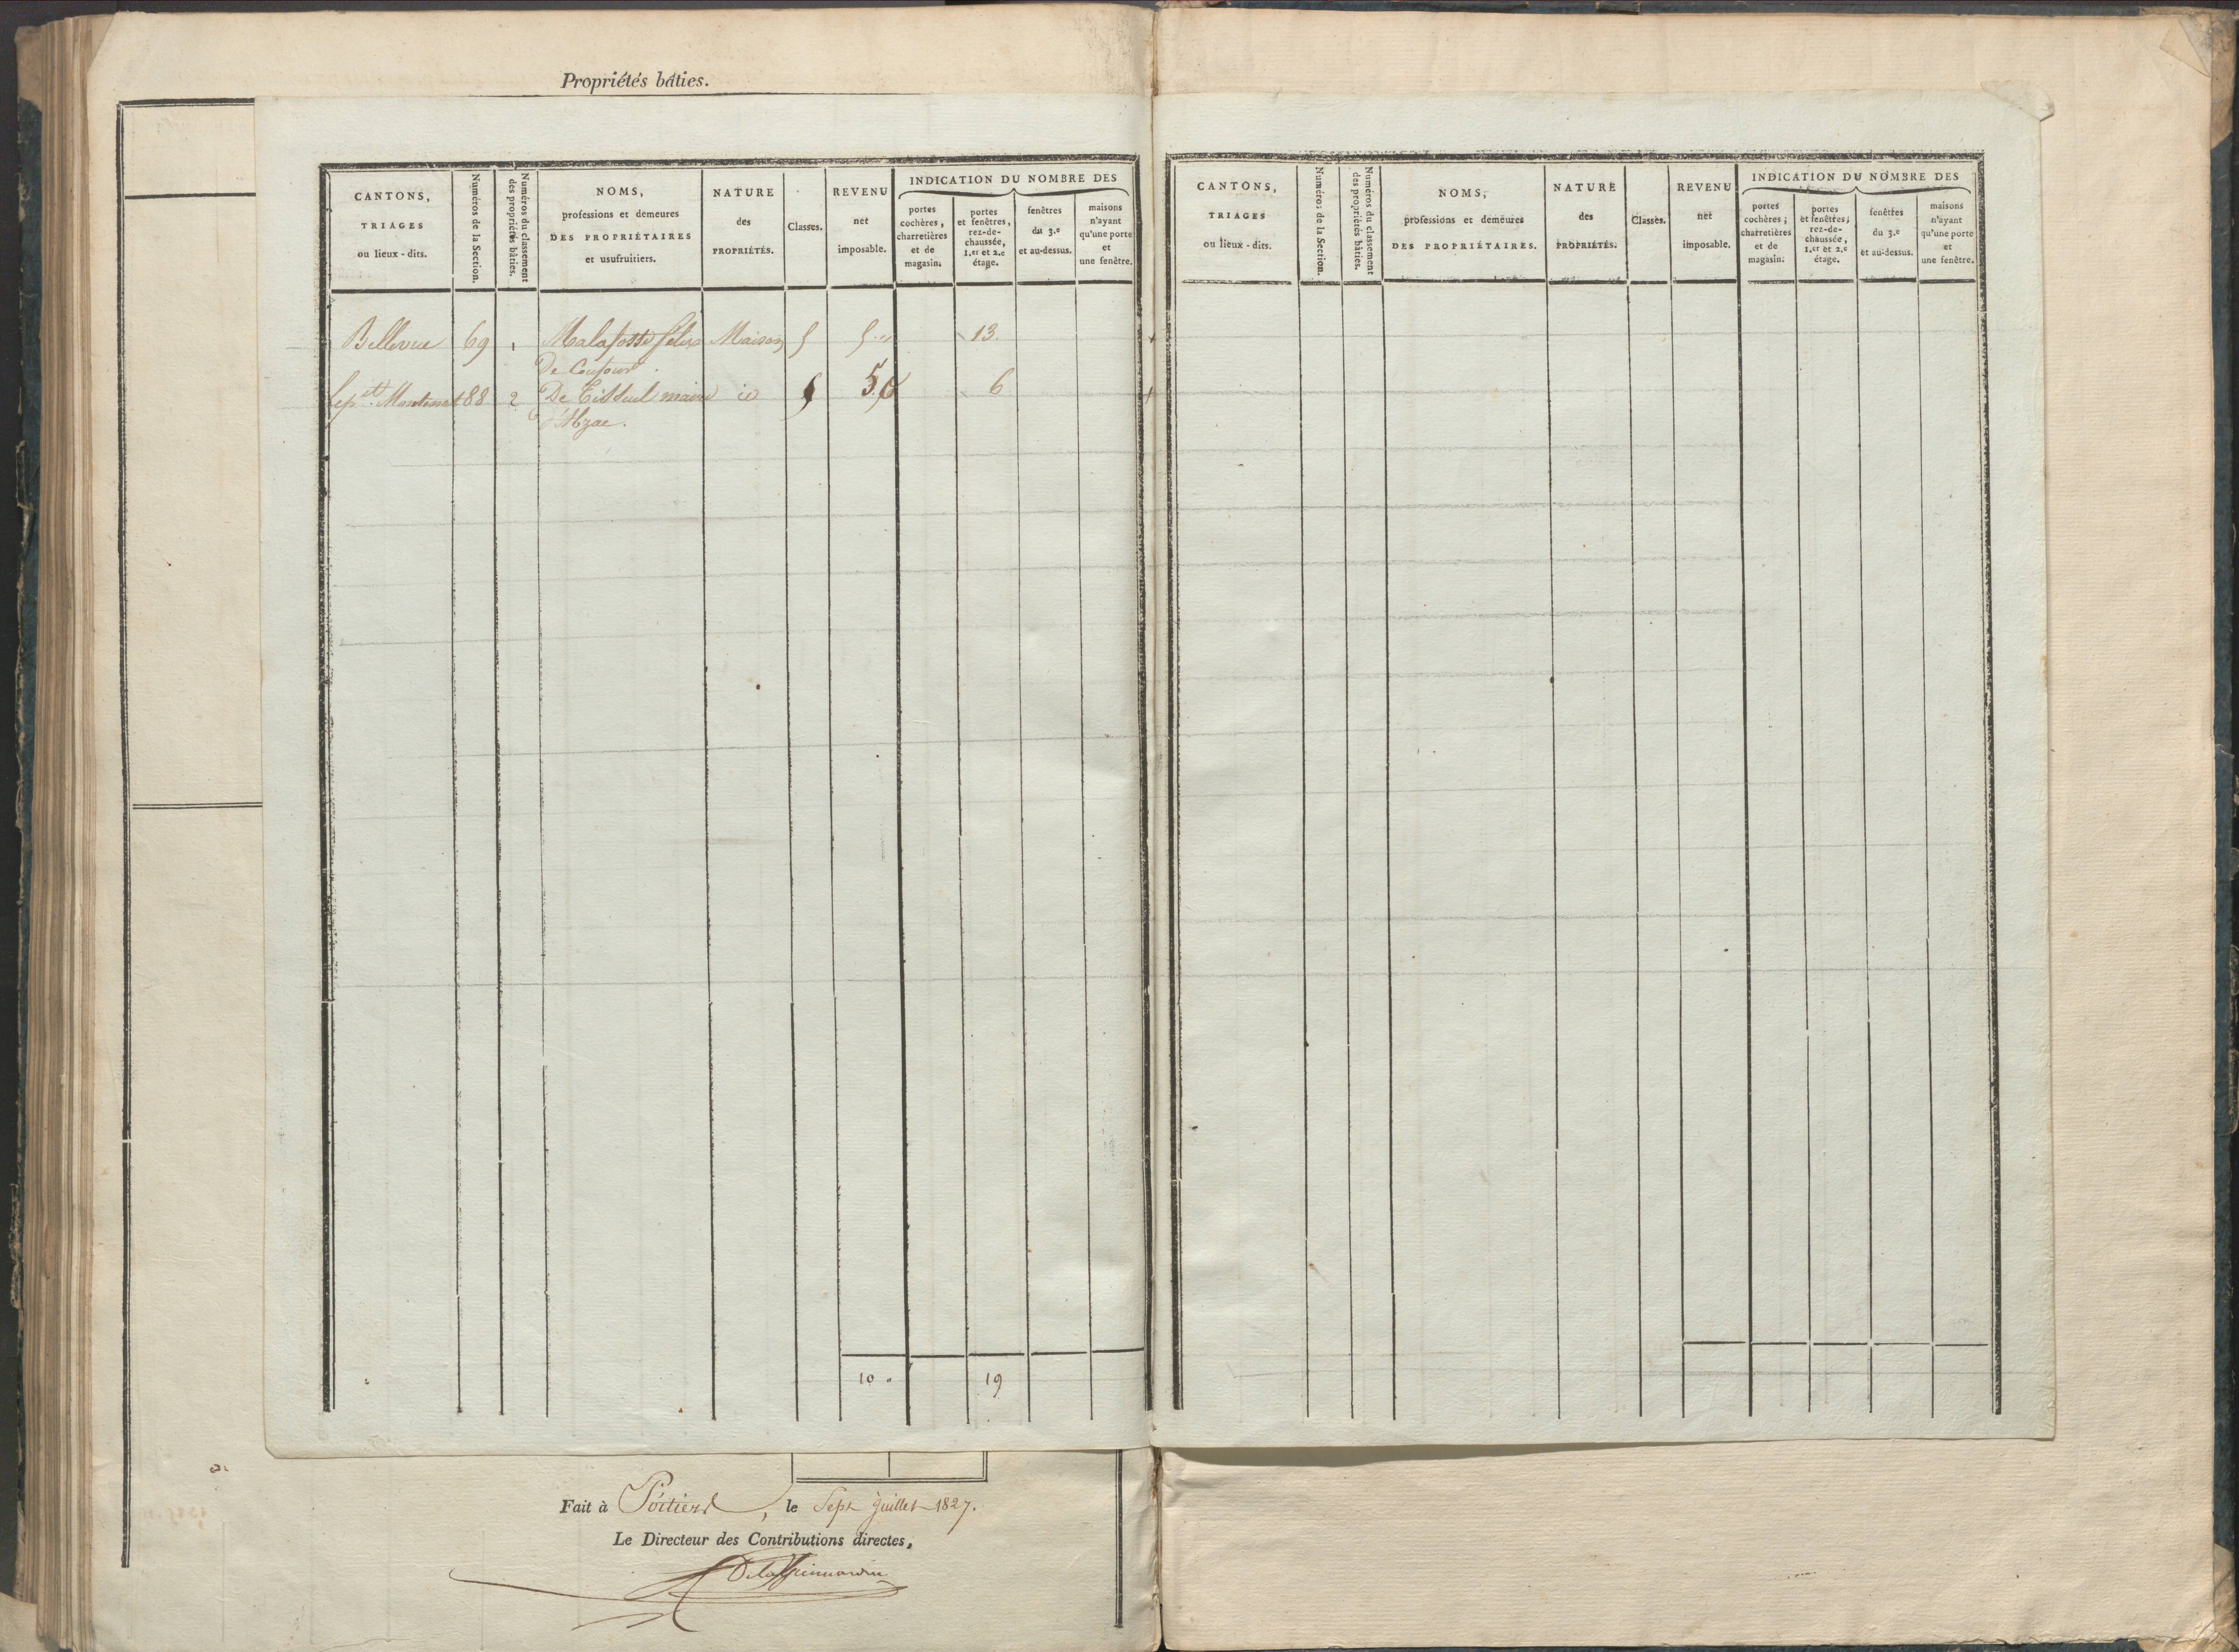 Propriétés bâties.
CANTONS,
TRIAGES
ou lieux - dits.
Numéros de la Section.
Numéros du classement
des propriétés bâties.
NOMS,
professions et demeures
DES PROPRIÉTAIRES
et usufruitiers.
NATURE
des
PROPRIÉTÉS.
Classes.
REVENU
net
imposable.
INDICATION DU NOMBRE DES
portes
cochères,
charretières
et de
magasin.
portes
et fenêtres,
rez-de-
chaussée,
1.er et 2.e
étage.
fenêtres
du 3.e
et au-dessus.
maisons
n'ayant
qu'une porte
et
une fenêtre.
Bellevue 69 1 Malafosse félix Maison 5 5 " 13.
De
88 2 De maire id 5 6
d'Abzac.
10 " 19
CANTONS,
TRIAGES
ou lieux - dits.
Numéros de la Section.
Numéros du classement
des propriétés bâties.
NOMS,
professions et demeures
DES PROPRIÉTAIRES.
NATURE
des
PROPRIÉTÉS.
Classes.
REVENU
net
imposable.
INDICATION DU NOMBRE DES
portes
cochères ;
charretières
et de
magasin.
portes
et fenêtres ;
rez-de-
chaussée,
1.er et 2.e
étage.
fenêtres
du 3.e
et au-dessus.
maisons
n'ayant
qu'une porte
et
une fenêtre.
Fait à Poitiers, le Sept juillet 1827.
Le Directeur des Contributions directes,